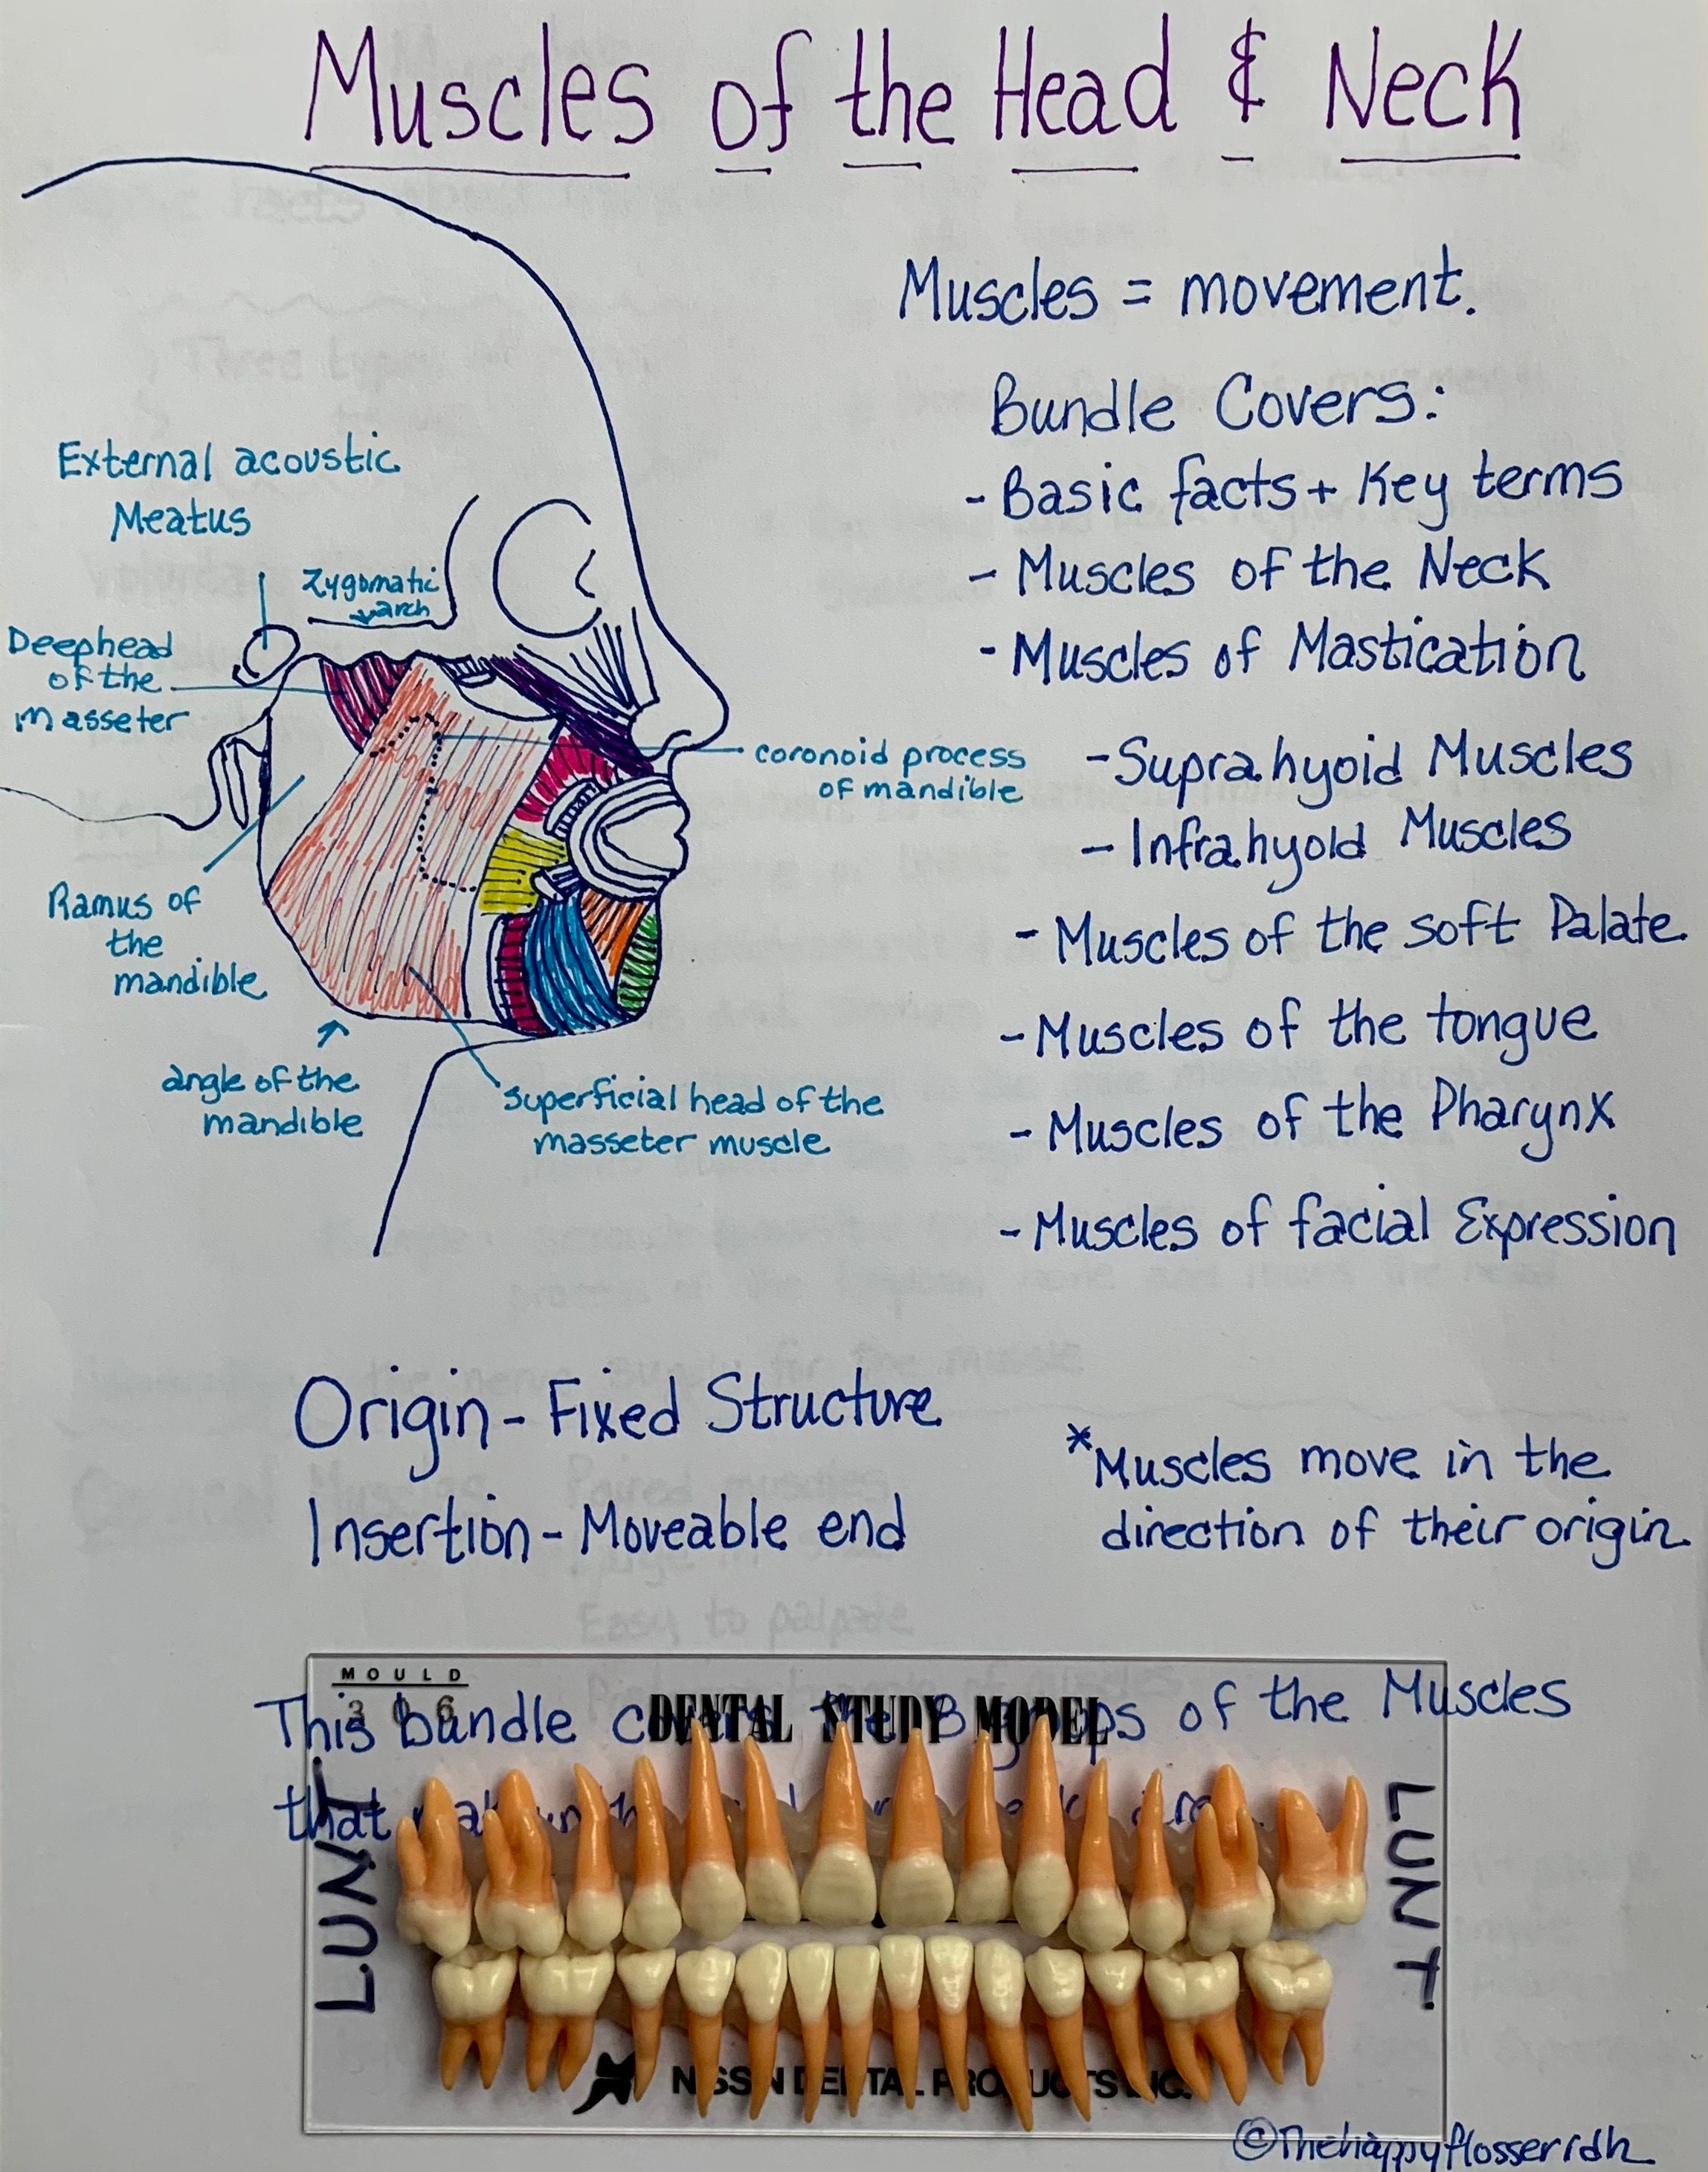 Muscles of the Head & Neck
Muscles = movement.
Bundle Covers:
- Basic facts + Key terms
- Muscles of the Neck
- Muscles of Mastication
- Suprahyoid Muscles
- Infrahyoid Muscles
- Muscles of the soft Palate
- Muscles of the tongue
- Muscles of the Pharynx
- Muscles of facial Expression
External acoustic
Meatus
Zygomatic
arch
Deephead
of the
masseter
coronoid process
of mandible
Ramus of
the
mandible
angle of the
mandible
Superficial head of the
masseter muscle
Origin - Fixed Structure
Insertion - Moveable end
*Muscles move in the
direction of their origin
MOULD
306
DENTAL STUDY MODEL
This bundle covers the 8 groups of the Muscles
that
LUNT
LUNT
NISSIN DENTAL PRODUCTS INC.
©Thehappyflosserrdh